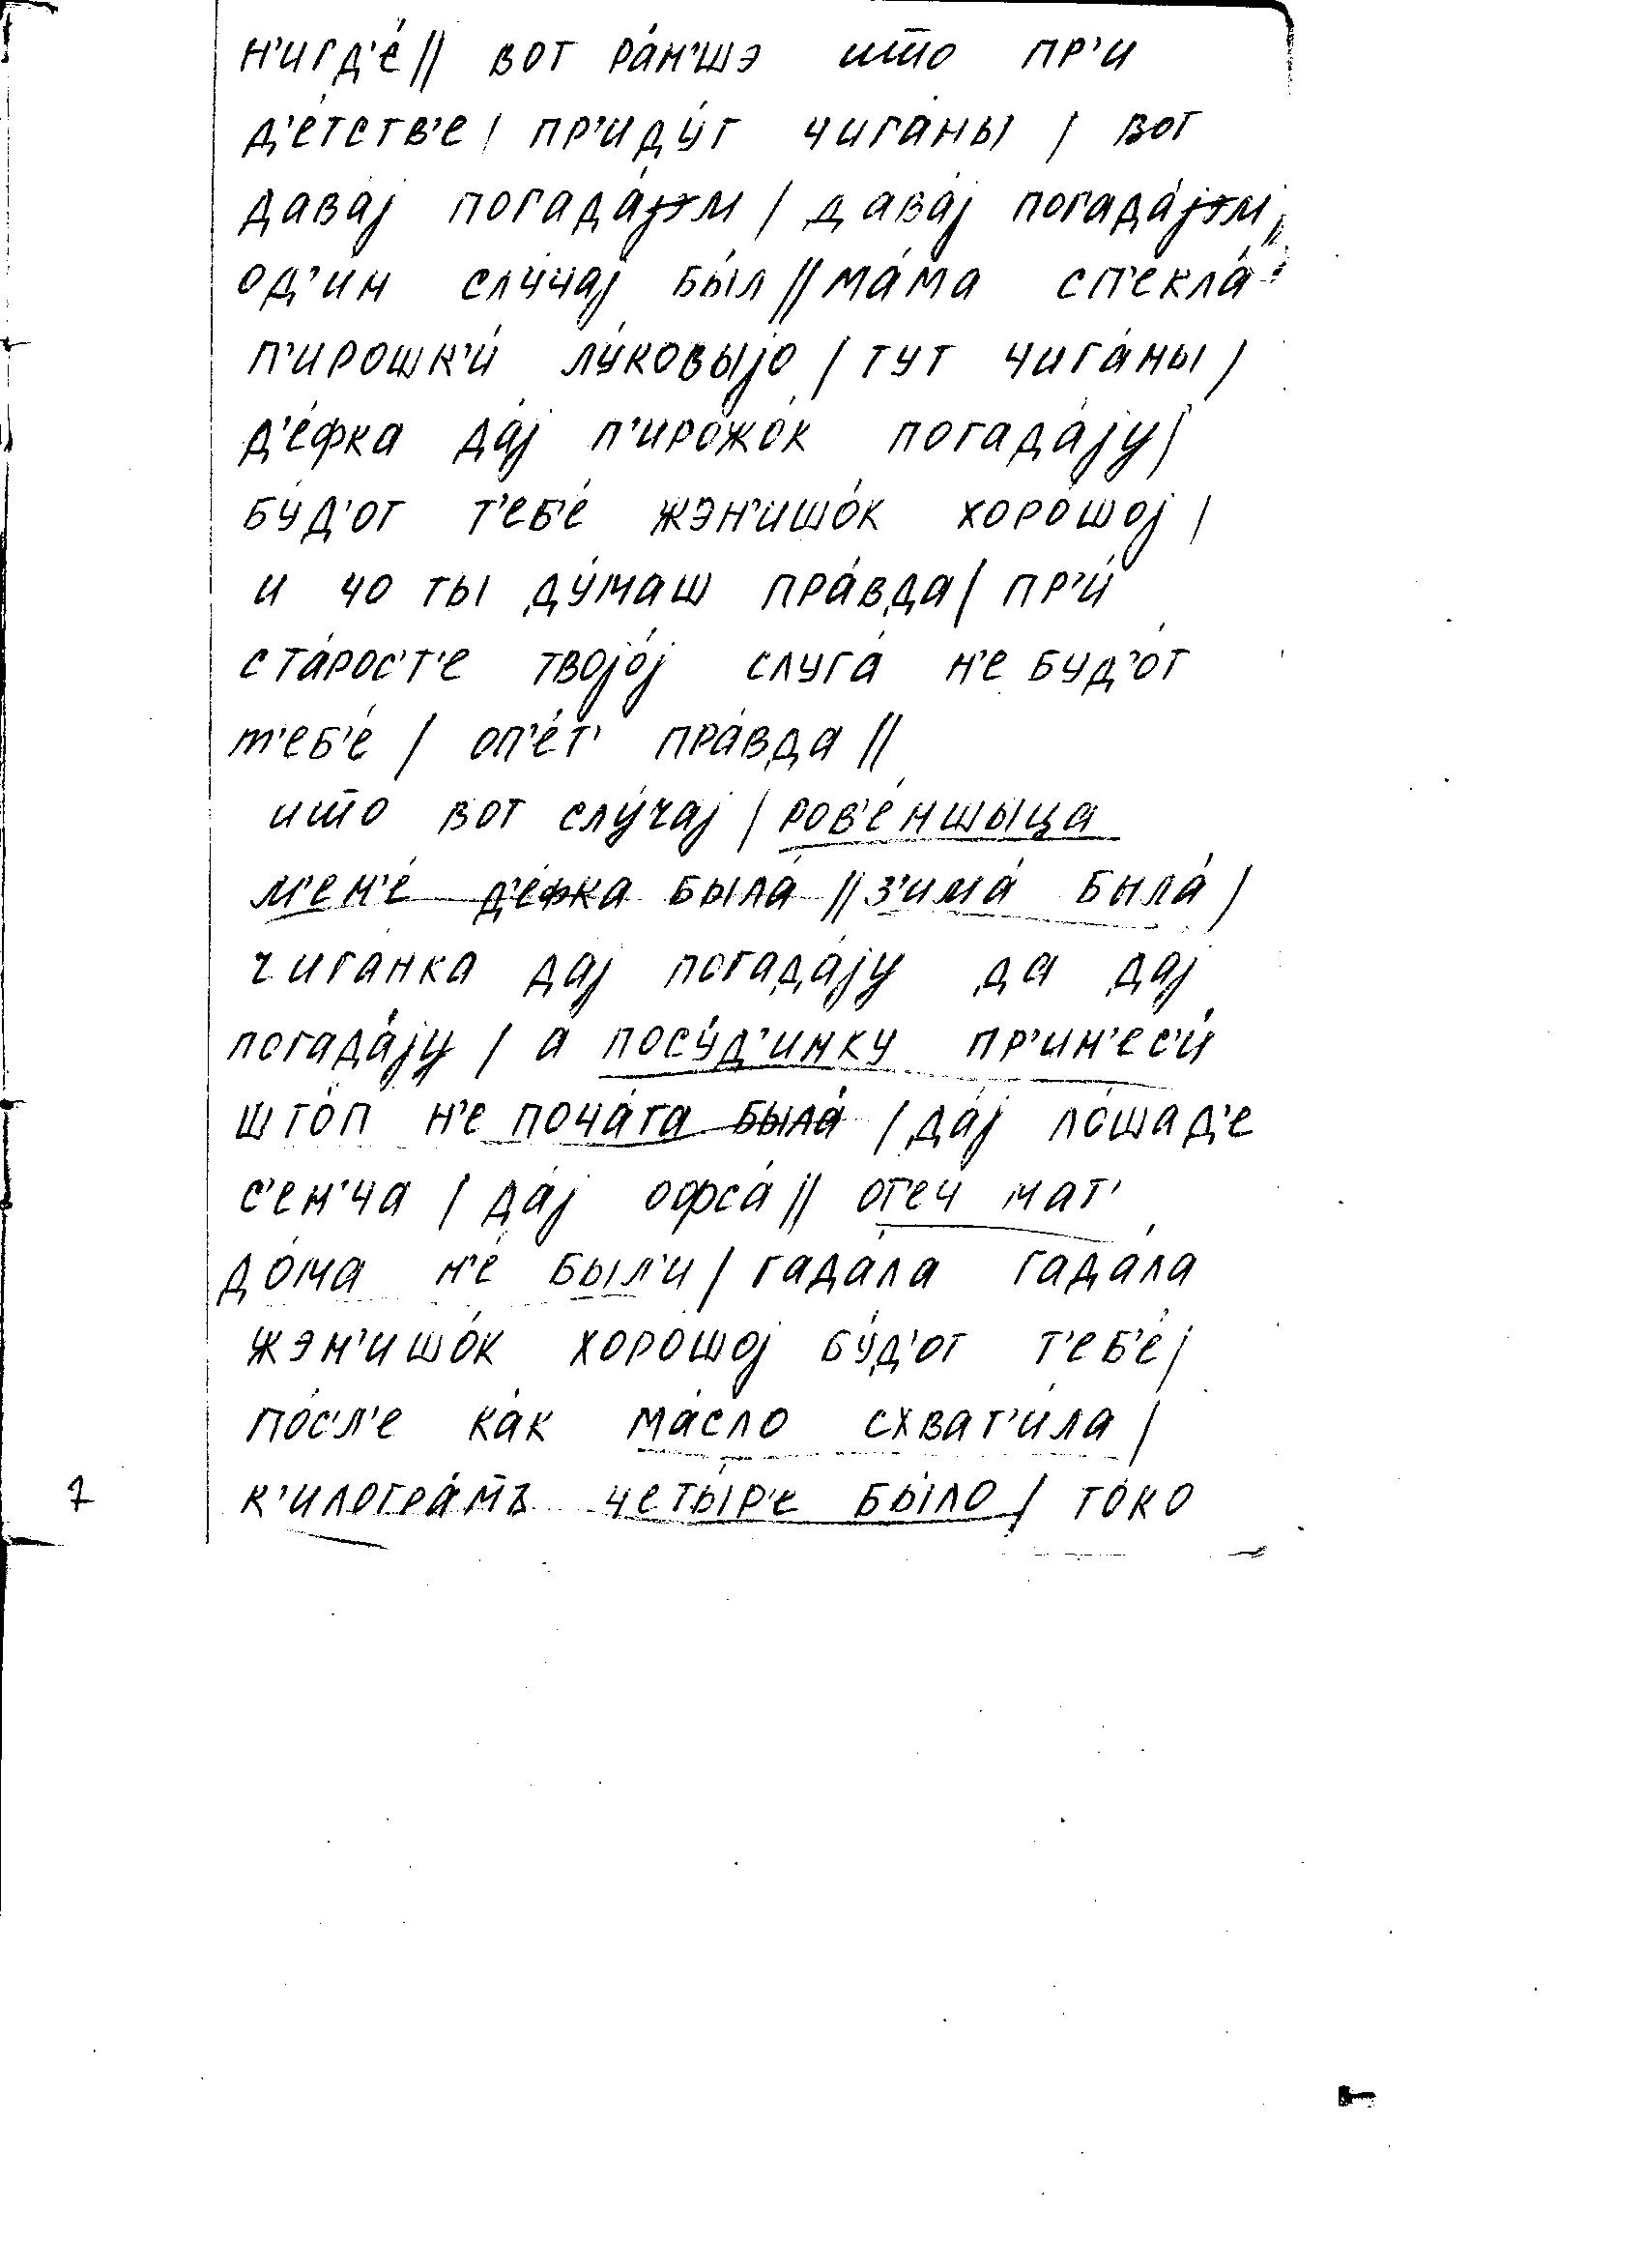 н'игд'е́ // вот ра́н'шэ ит̅о пр'и
д'е́тств'е / пр'иду́т чига́ны / вот
дава́ј погада́јэм / дава́ј погада́јэм //
од'и́н слу́чај бы́л // ма́ма сп'екла́
п'ирошк'и́ лу́ковыјо / тут чига́ны /
д'е́фка да́ј п'иро́жо́к погада́ју /
бу́д'от т'еб'е́ жэн'ишо́к хоро́шој /
и чо ты ду́маш пра́вда / пр'и́
ста́рос'т'е твоjо́ј слуга́ н'е буд'о́т
т'еб'е́ / оп'е́т' пра́вда //
ит̅о вот слу́чај / ров'е́ншыца
м'ен'е́ д'е́фка была́ // з'има́ была́ /
чига́нка дај погада́ју да дај
погада́ју / а посу́д'инку пр'ин'ес'и́
што́п н'е поча́та была́ / да́ј ло́шад'е
с'ен'ча / да́ј офса́ // от'еч мат'
до́ма н'е́ был'и / гада́ла гада́ла
жэн'ишо́к хоро́шој бу́д'от т'еб'е́ /
по́с'л'е ка́к ма́сло схват'и́ла /
7 к'илогра́м̅ъ четы́р'е бы́ло / то́ко